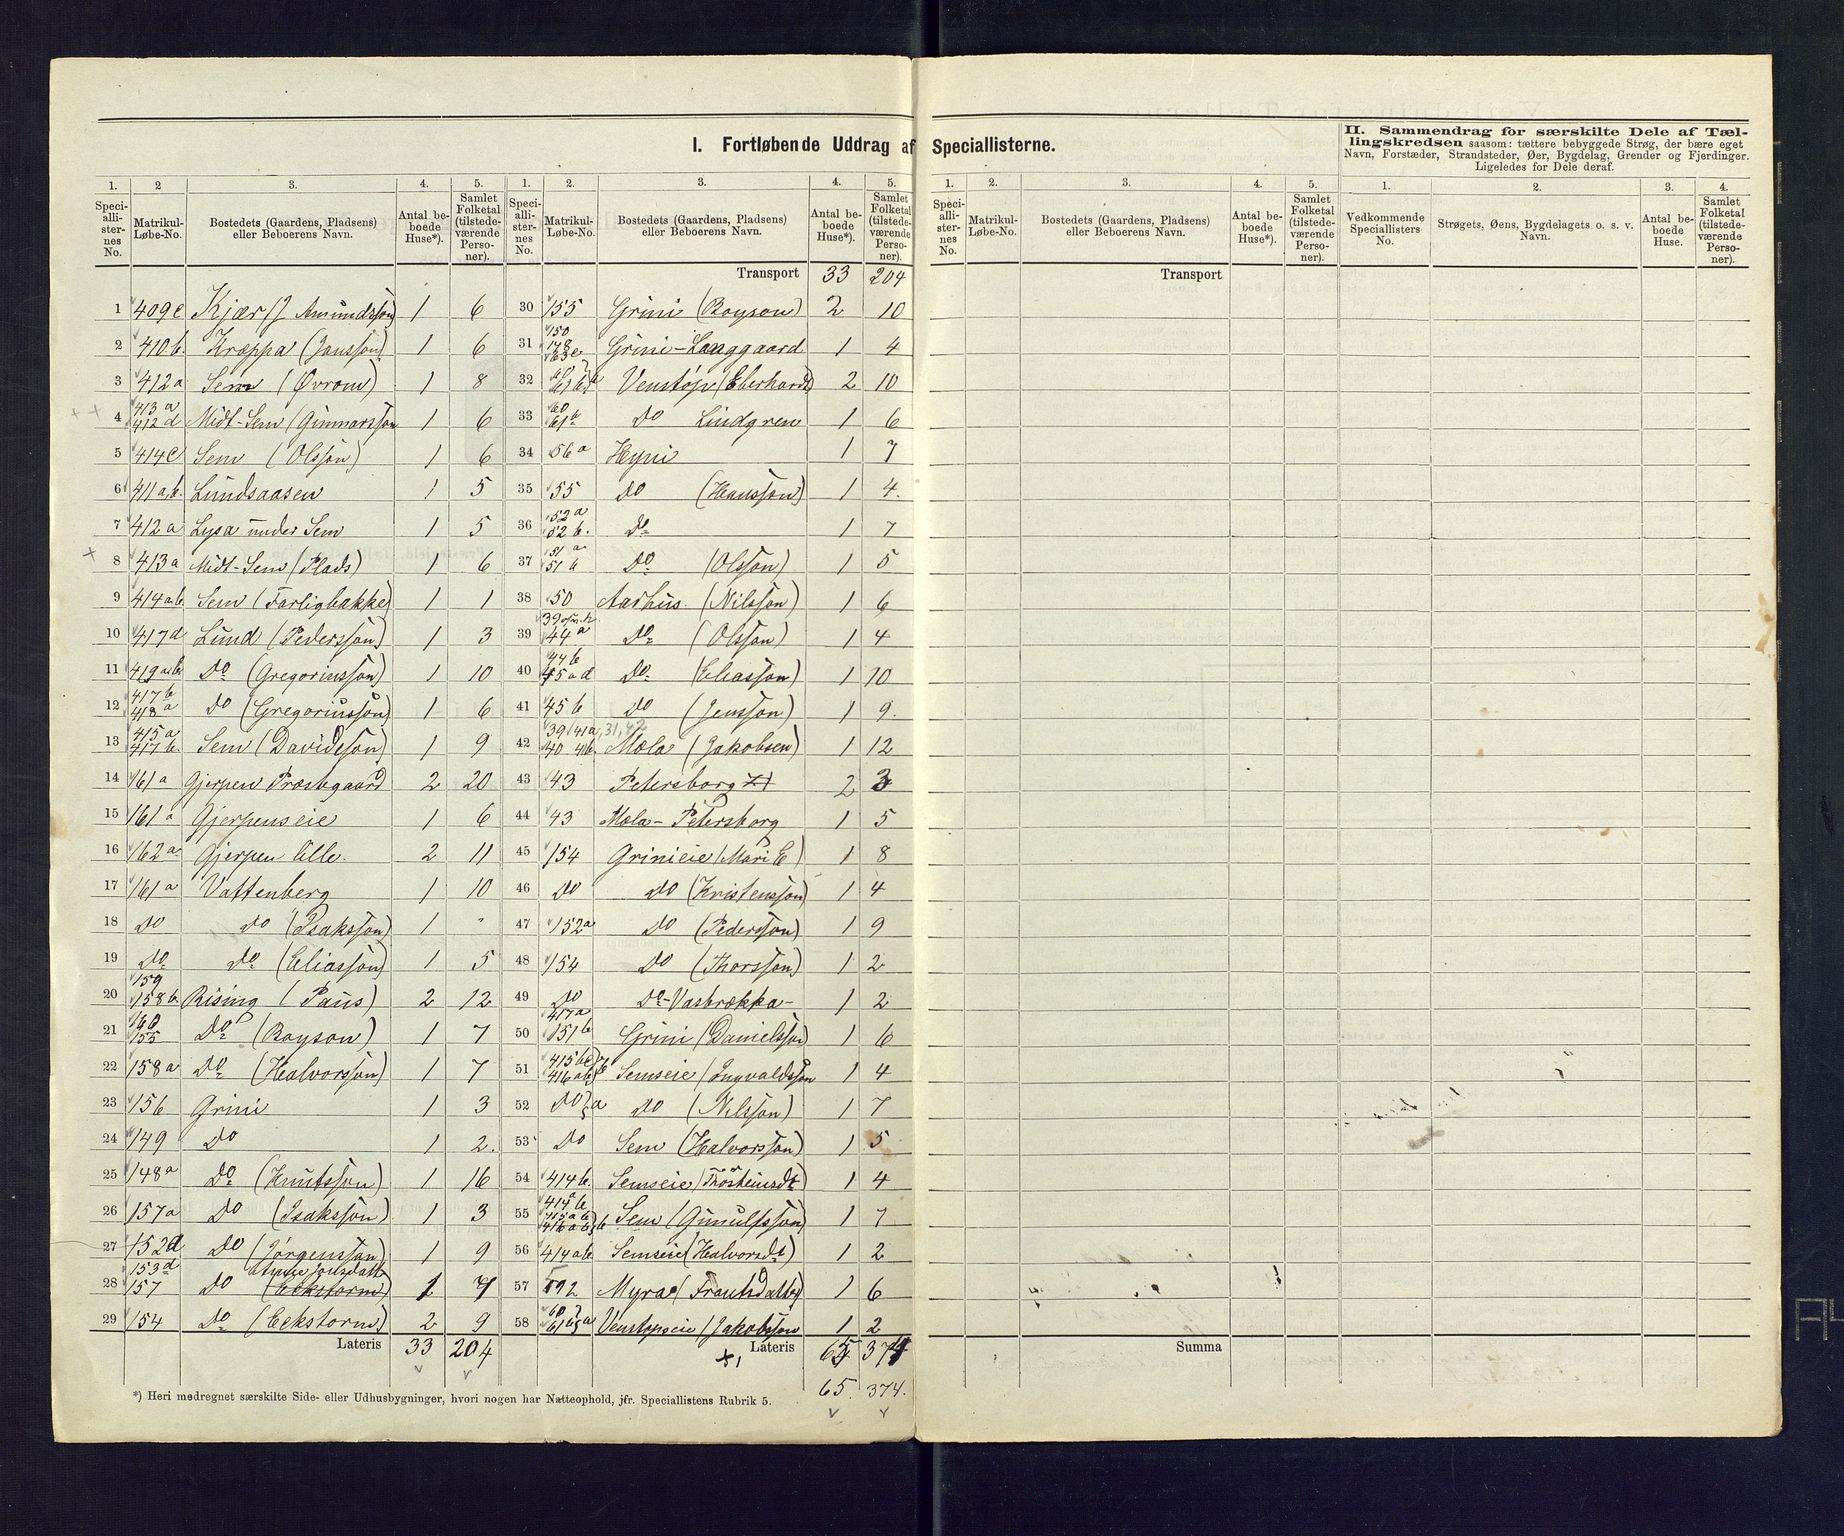 I. Fortløbende Uddrag af Speciallisterne.
II. Sammendrag for særskilte Dele af Tæl-
lingskredsen saasom: tættere bebyggede Strøg, der bære eget
Navn, Forstæder, Strandsteder, Øer, Bygdelag, Grender og Fjerdinger.
Ligeledes for Dele deraf.
1. 2 3. 4. 5. 1. 2. 3. 4. 5. 1. 2. 3. 4. 5. 1. 2. 3. 4.
Speciallisternes No. Matrikul-Løbe-No. Bostedets (Gaardens, Pladsens) eller Beboerens Navn. Antal beboede Huse*). Samlet Folketal (tilstedeværende Personer).
Speciallisternes No. Matrikul-Løbe-No. Bostedets (Gaardens, Pladsens) eller Beboerens Navn. Antal beboede Huse*). Samlet Folketal (tilstedeværende Personer).
Speciallisternes No. Matrikul-Løbe-No. Bostedets (Gaardens, Pladsens) eller Beboerens Navn. Antal beboede Huse*). Samlet Folketal (tilstedeværende Personer).
Vedkommende Speciallisters No. Strøgets, Øens, Bygdelagets o. s. v. Navn. Antal beboede Huse. Samlet Folketal (tilstedeværende Personer).
1 409c Kjær (J Amundsson) 1 6
2 410b. Kræppa (Jansson) 1 6
3 412a Sem (Øvrom) 1 8
4 413a 412d Midt-Sem (Gunnarsson 1 6
5 414c Sem (Olsson) 1 6
6 411a,b. Lundsaasen 1 5
7 412a Lysa under Sem 1 5
8 413a Midt-Sem (Plads) 1 6
9 414a,b. Sem (Farligbakke) 1 1
10 417d Lund (Pedersson) 1 3
11 419a,b. Do (Gregoriusson) 1 10
12 417b 418a Do (Gregoriusson) 1 6
13 415a 417b. Sem (Davidsson) 1 9
14 161a Gjerpen Præstegaard 2 20
15 161a Gjerpenseie 1 6
16 162a Gjerpen lille. 2 11
17 161a Vattenberg 1 10
18 Do Do (Isaksson) 1 "
19 Do Do (Eliasson) 1 5
20 159 158b. Rising (Paus) 2 12
21 160 155 Do (Boyson) 1 7
22 158a Do (Halvorsson) 1 7
23 156 Grini 1 3
24 149 Do 1 2.
25 148a Do (Knutsson) 1 16
26 157a Do (Isaksson) 1 3
27 152d Do (Jørgensson) 1 9
28 153d 157 Do Anne Jonsdatt (Eckstorm) 1 7
29 154 Do (Eckstorm) 2 9
Lateris 33 204
Transport 33 204
30 155 Grini (Boyson) 2 10
31 150 178 63c Grini-Langgaard 1 4
32 60 61b a Venstøp (Eberhardt) 2 10
33 60 61b Do Lindgren 1 6
34 56a Hyni 1 7
35 55 Do (Hansson) 1 4.
36 52a 52b. Do 1 7
37 51a 51b Do (Olsson) 1 5
38 50 Aarhus. (Nilsson) 1 6
39 44a Do (Olsson) 1 4
40 44b 45ad Do (Eliasson) 1 10
41 45b Do (Jensson) 1 9.
42 39 41a, 31,42 40 4b. Mæla (Jakobsen) 1 12
43 43 Petersborg 2 3
44 43 Mæla-Petersborg 1 5
45 154 Grinieie (Mari E) 1 8
46 Do Do (Kristensson) 1 4
47 152a Do (Pedersson) 1 9
48 154 Do (Thorsson) 1 2
49 Do Do-Vasbrækka- 1 2
50 417a 151b Grini (Danielsson) 1 6
51 415bc 416ab Semseie (Ingvaldsson 1 4
52 Do a Do (Nilsson) 1 7
53 Do Sem (Halvorsson) 1 5
54 414b. Semseie (Thorsteinsdt) 1 4
55 414a b 415a b 416a b b Sem (Gunulfsson) 1 7
56 414ab Semseie (Halvorsdt) 1 2
57 192 Myra (Frantsdatter) 1 6
58 60 61b a Venstøpseie (Jakobsson 1 2
+1 Lateris 65 374
65. 374.
Transport
Summa
*) Heri medregnet særskilte Side- eller Udhusbygninger, hvori nogen har Natteophold, jfr. Speciallistens Rubrik 5.